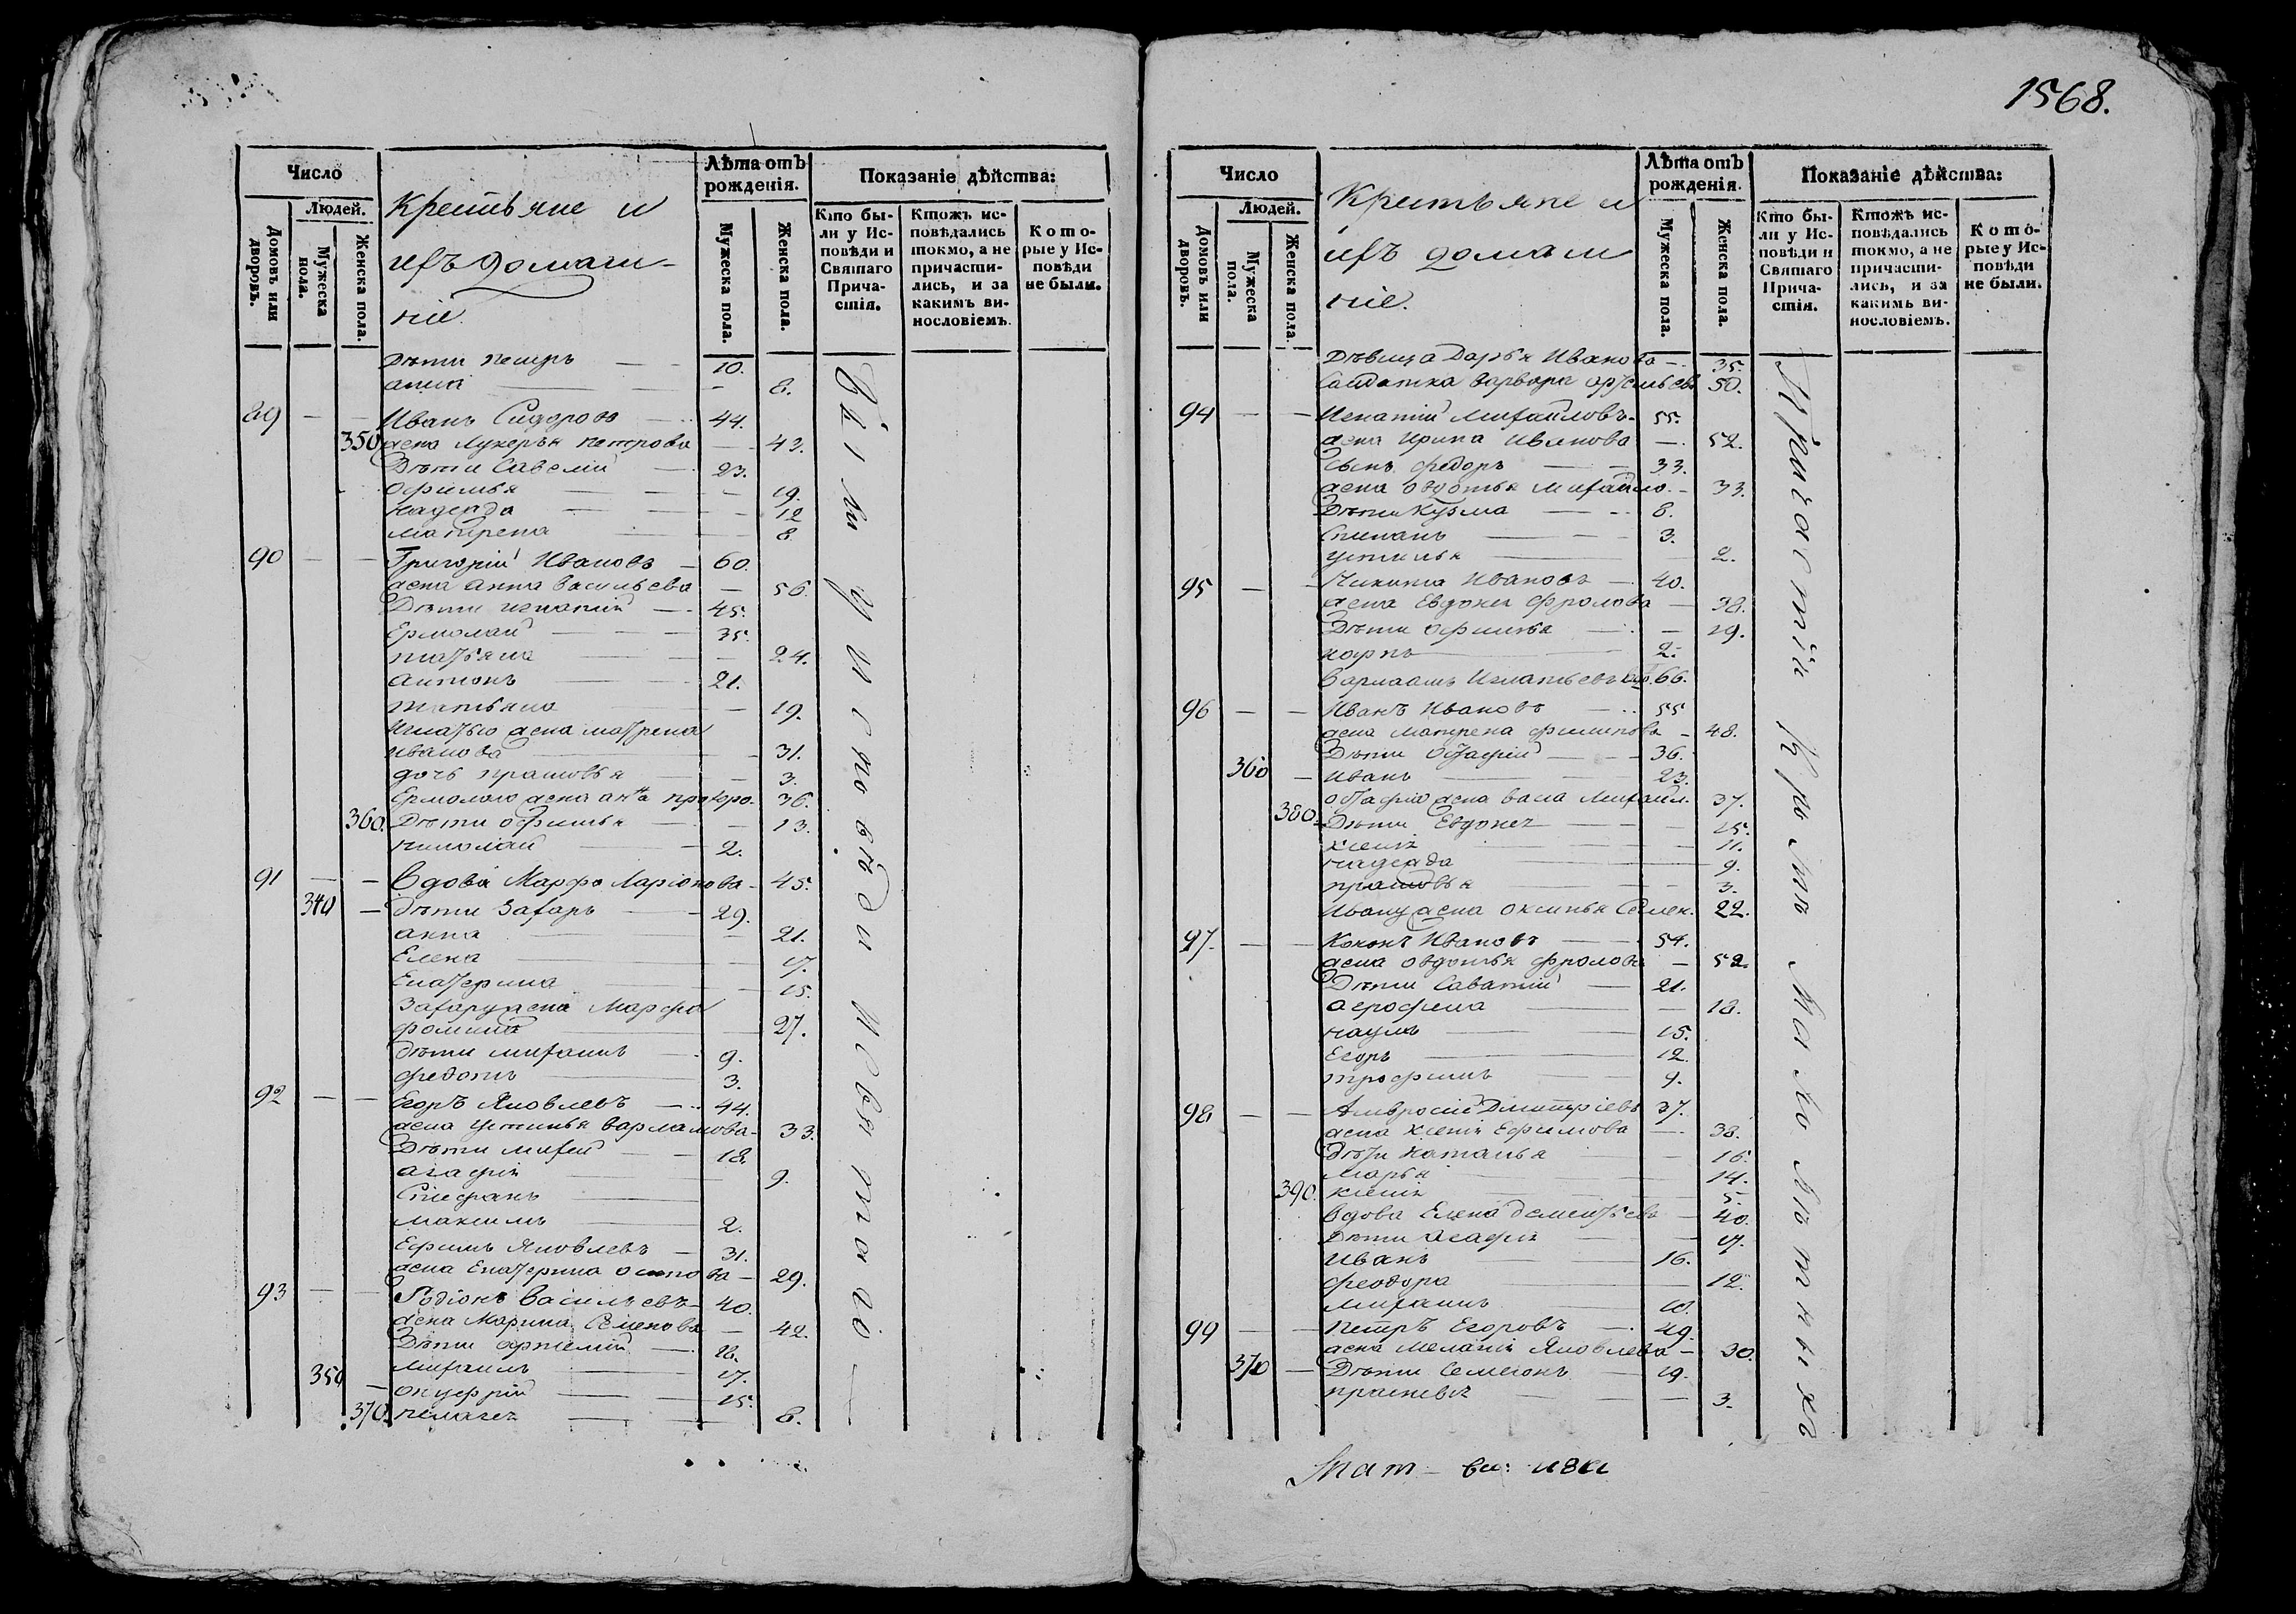 1568.
Число
Людей.
Домовъ или дворовъ.
Мужеска пола.
Женска пола.
Крестьяне и
ихъ домаш-
ніе.
Лѣта отъ рожденія.
Мужеска пола.
Женска пола.
Показаніе дѣйства:
Кто бы-
ли у Ис-
повѣди и
Святаго
Прича-
стія.
Ктожъ ис-
повѣдались
токмо, а не
причасти-
лись, и за
какимъ ви-
нословіемъ.
Кото-
рые у Ис-
повѣди
не были.
Дѣти Петръ 10.
анна 8.
89 Иванъ Сидоровъ 44.
350 жена Лукерья Петрова 43.
Дѣти Савелій 23.
Офимья 19.
Надежда 12
Матрена 8
90 Григорій Ивановъ 60.
жена Анна Васильева 56.
Дѣти Игнатій 45.
Ермолай 35.
татьяна 24.
Антонъ 21.
татьяна 19.
Игнатью жена матрена
Иванова 31.
дочь прасковья 3.
Ермолаю жена анна прохоро. 36.
360. Дѣти офимья 13.
николай 2.
91 Вдова Марфа Ларіонова 45.
340 дѣти Захаръ 29.
анна 21.
Елена 17.
Екатерина 15.
Захару жена Марфа
фомина 27.
дѣти михаилъ 9.
федотъ 3.
92 Егоръ Яковлевъ 44.
жена устинья варламова 33.
Дѣти михей 18.
агафія 9.
Стефанъ
Максимъ 2.
Ефимъ Яковлевъ 31.
жена Екатерина осипова 29.
93 Родіонъ Васильевъ 40.
жена Марина Семенова 42.
Дѣти артемій 18.
350 михаилъ 17.
онуфрій 15.
370. пелагея 8.
Были у исповѣди и свя таго
Число
Людей.
Домовъ или дворовъ.
Мужеска пола.
Женска пола.
Крестьяне и
ихъ домаш
ніе.
Лѣта отъ рожденія.
Мужеска пола.
Женска пола.
Показаніе дѣйства:
Кто бы-
ли у Ис-
повѣди и
Святаго
Прича-
стія.
Ктожъ ис-
повѣдались
токмо, а не
причасти-
лись, и за
какимъ ви-
нословіемъ.
Кото-
рые у Ис-
повѣди
не были.
Дѣвица Дарья Иванова 35.
Салдатка варвара 50.
94 Игнатій Михайловъ 55.
жена Ирина Иванова 52.
Сынъ федоръ 33.
жена овдотья михайло. 33.
Дѣти Кузма 8.
Степанъ 3.
устинья 2.
95 Никита Ивановъ 40.
жена Евдокея Фролова 38.
Дѣти офимья 19.
карпъ 2.
Варлаамъ Игнатьевъ вдо. 66.
96 Иванъ Ивановъ 55
жена матрена филипова 48.
Дѣти 36.
360 Иванъ 23.
жена васа михайл. 37.
380. Дѣти Евдокея 15.
ксенія 11.
надежда 9.
прасковья 3.
Ивану жена оксинья Семен. 22.
97. Кононъ Ивановъ 54.
жена овдотья фролова 52.
Дѣти Саватій 21.
18.
наумъ 15.
Егоръ 12.
трофимъ 9.
98 Амвросій Дмитріевъ 37.
жена ксенія Ефимова 38.
дѣти наталья 16.
Марья 14.
390. ксенія 5.
Вдова Елена дементьева 40.
Дѣти агафія 17.
Иванъ 16.
феодора 12.
михаилъ 10.
99 Петръ Егоровъ 49.
жена меланія Яковлева 30.
370 Дѣти Семеонъ 19.
праскевія 3.